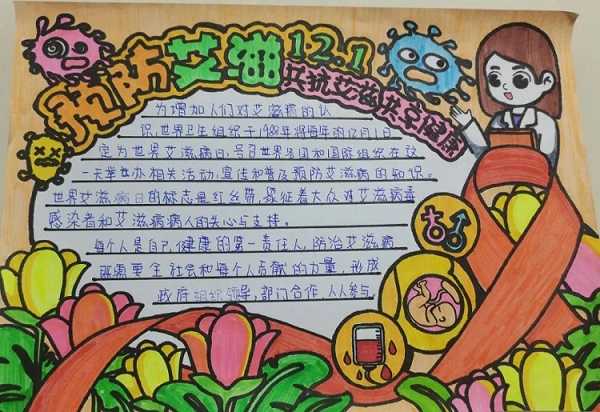 预防艾滋
12.1
共抗艾滋共享健康
为增加人们对艾滋病的认
识,世界卫生组织于1988年将每年的12月1日
定为世界艾滋病日,号召世界各国和国际组织在这
一天举办相关活动,宣传和普及预防艾滋病的知识。
世界艾滋病日的标志是红丝带,象征着大众对艾滋病毒
感染者和艾滋病病人的关心与支持。
每个人是自己健康的第一责任人,防治艾滋病
既需要全社会和每个人贡献的力量,形成
政府组织领导,部门合作,人人参与